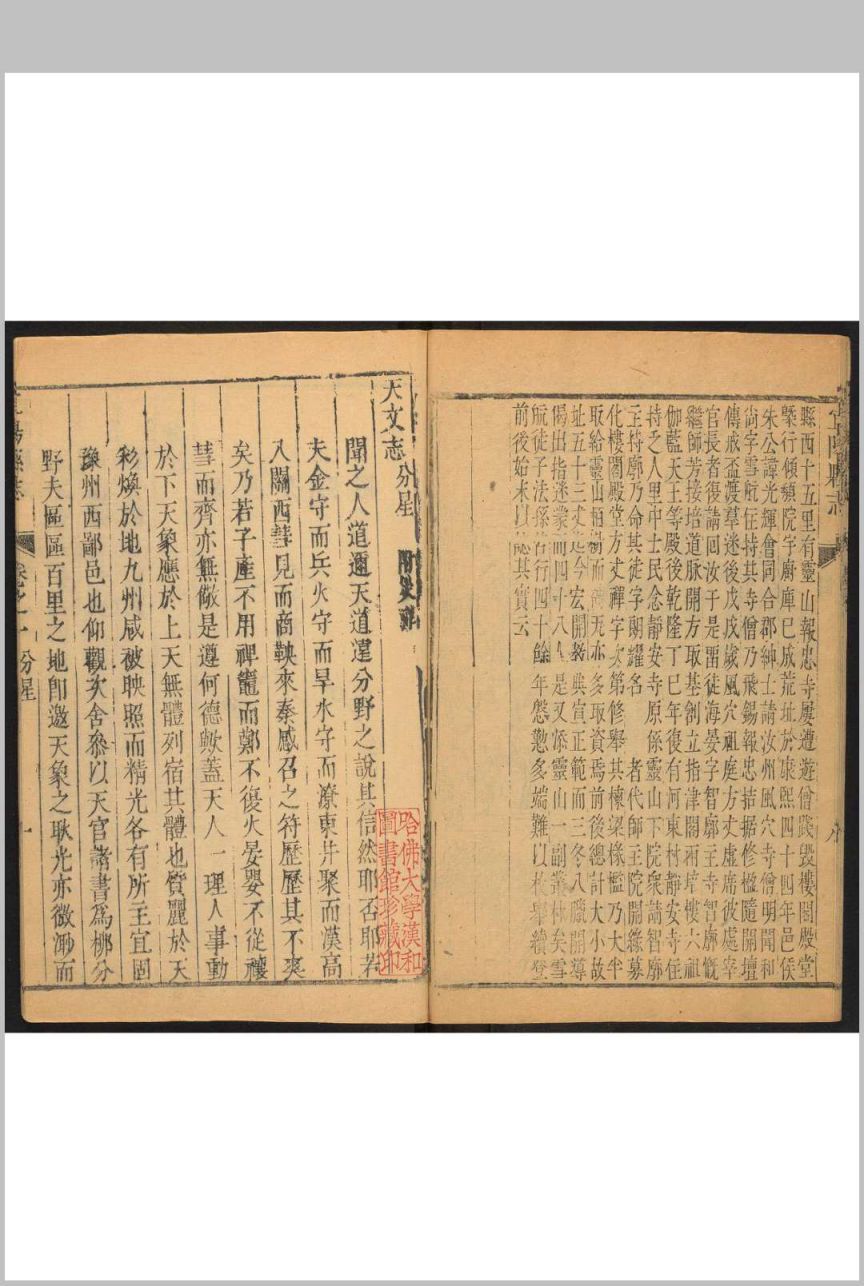 宜陽縣志
縣西十五里有靈山報忠寺屢遭遊僧踐毀樓閣殿堂
槩行傾頹院宇廚庫已成荒址於康熙四十四年邑侯
朱公諱光輝會同合郡紳士請汝州風穴寺僧明聞和
尚字雪航住持其寺僧乃飛錫報忠拮据修楹隨開壇
傳戒盃渡羣迷後戊戌歲風穴祖庭方丈虛席彼處宰
官長者復請回汝于是畱徒海晏字智廓主寺智廓慨
繼師芳接培道脉開方取基刱立指津閣兩壇樓六祖
伽藍天王等殿後乾隆丁巳年復有河東村靜安寺住
持乏人里中士民念靜安寺原係靈山下院衆請智廓
主持廓乃命其徒字朗耀名 者代師主院開緣募
化樓閣殿堂方丈禪字次第修舉其榱梁椽檻乃大半
取給靈山 多取資焉前後總計大小故
址五十三丈 今宏開 典宣正範而三冬八臘開導
偈出指迷 四十八 是又添靈山一副叢林矣雪
航徒子法孫 行四十餘年慇懃多端難以枚舉續登
前後始末以 其實云
天文志 分星 附災祥
聞之人道邇天道遠分野之說其信然耶否耶若
夫金守而兵火守而旱水守而潦東井聚而漢高
入關西彗見而商鞅來秦感召之符歷歷其不爽
矣乃若子產不用禆竈而鄭不復火晏嬰不從禳
彗而齊亦無儆是遵何德歟蓋天人一理人事動
於下天象應於上天無體列宿其體也質麗於天
彩煥於地九州咸被映照而精光各有所主宜固
豫州西鄙邑也仰觀次舍叅以天官諸書爲柳分
野夫區區百里之地卽邀天象之耿光亦微渺而
陽縣志 卷之一 分星 一
哈佛大學漢和
圖書館珍藏印